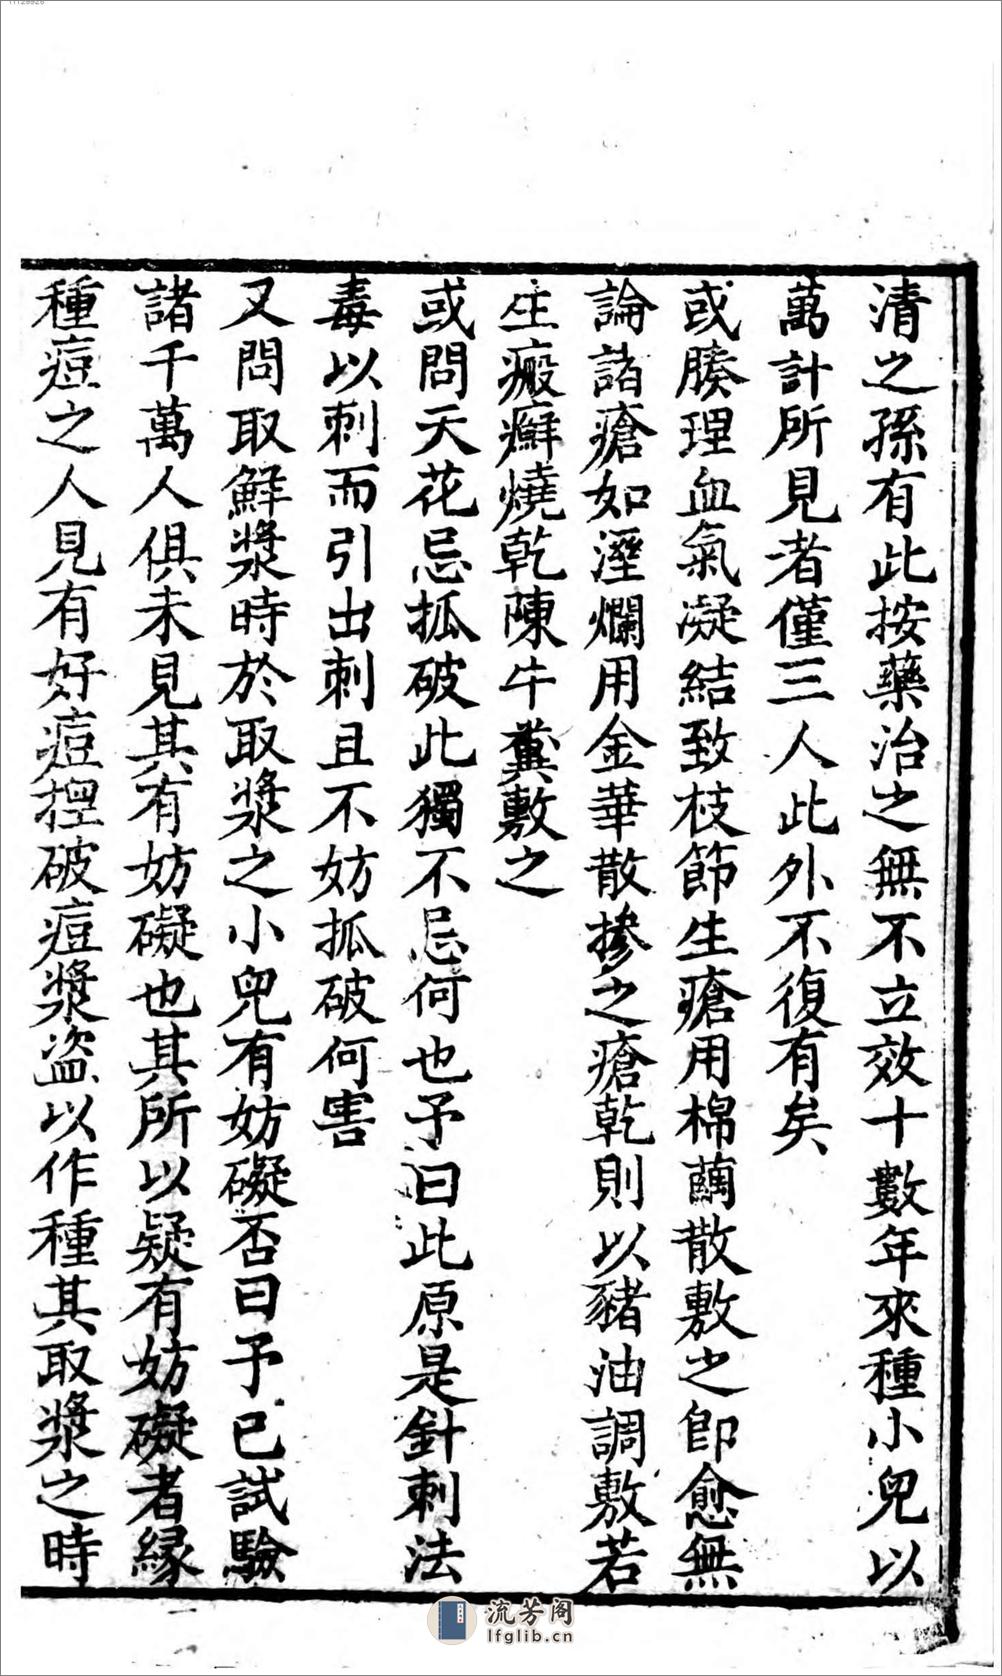 清之孫有此按藥治之無不立效十數年來種小兒以
萬計所見者僅三人此外不復有矣
或腠理血氣凝結致枝節生瘡用棉繭散敷之即愈無
論諸瘡如溼爛用金華散摻之瘡乾則以豬油調敷若
生瘢癬燒乾陳牛糞敷之
或問天花忌抓破此獨不忌何也予曰此原是針刺法
毒以刺而引出刺且不妨抓破何害
又問取鮮漿時於取漿之小兒有妨礙否曰予已試驗
諸千萬人俱未見其有妨礙也其所以疑有妨礙者緣
種痘之人見有好痘揑破痘漿盜以作種其取漿之時
流芳阁
lfglib.cn